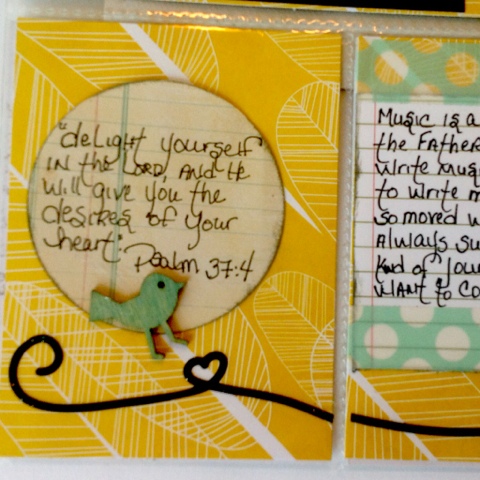 "delight yourself
in the Lord, and He
will give you the
desires of your
heart".
Psalm 37:4
Music is a
the Father
write musi
to write m
so moved w
Always su
kind of
want to co